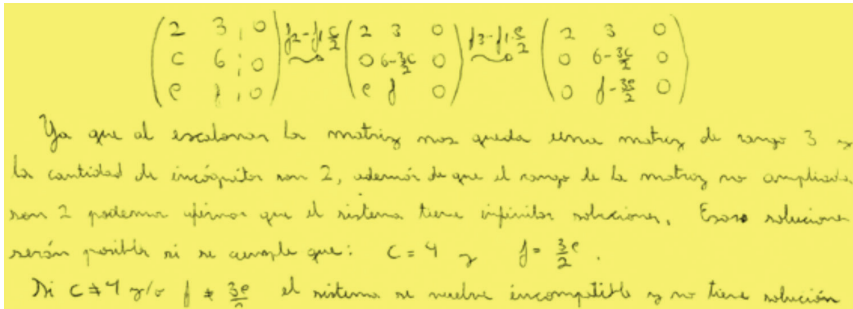 2 3 0 f2-f1·c/2 2 3 0 f3-f1·e/2 2 3 0
c 6 0 0 6-3c/2 0 0 6-3c/2 0
e f 0 e f 0 0 f-3e/2 0
Ya que al escalonar la matriz nos queda una matriz de rango 3 y
la cantidad de incógnitas son 2, además de que el rango de la matriz no ampliada
son 2 podemos afirmar que el sistema tiene infinitas soluciones. Esas soluciones
serán posibles si se cumple que: c = 4 y f = 3/2 e.
Si c ≠ 4 y/o f ≠ 3e/2 el sistema se vuelve incompatible y no tiene solución